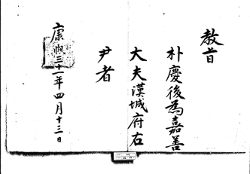 教旨
朴慶後為嘉善
大夫漢城府右
尹者
康熙三十一年四月十三日